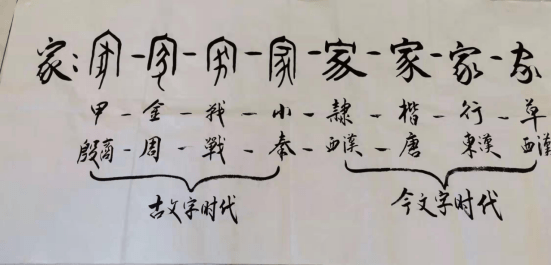 家：家－家－家－家－家－家－家－家
甲－金－戰－小－隸－楷－行－草
殷商－周－戰－秦－西漢－唐 東漢 西漢
古文字时代 今文字时代